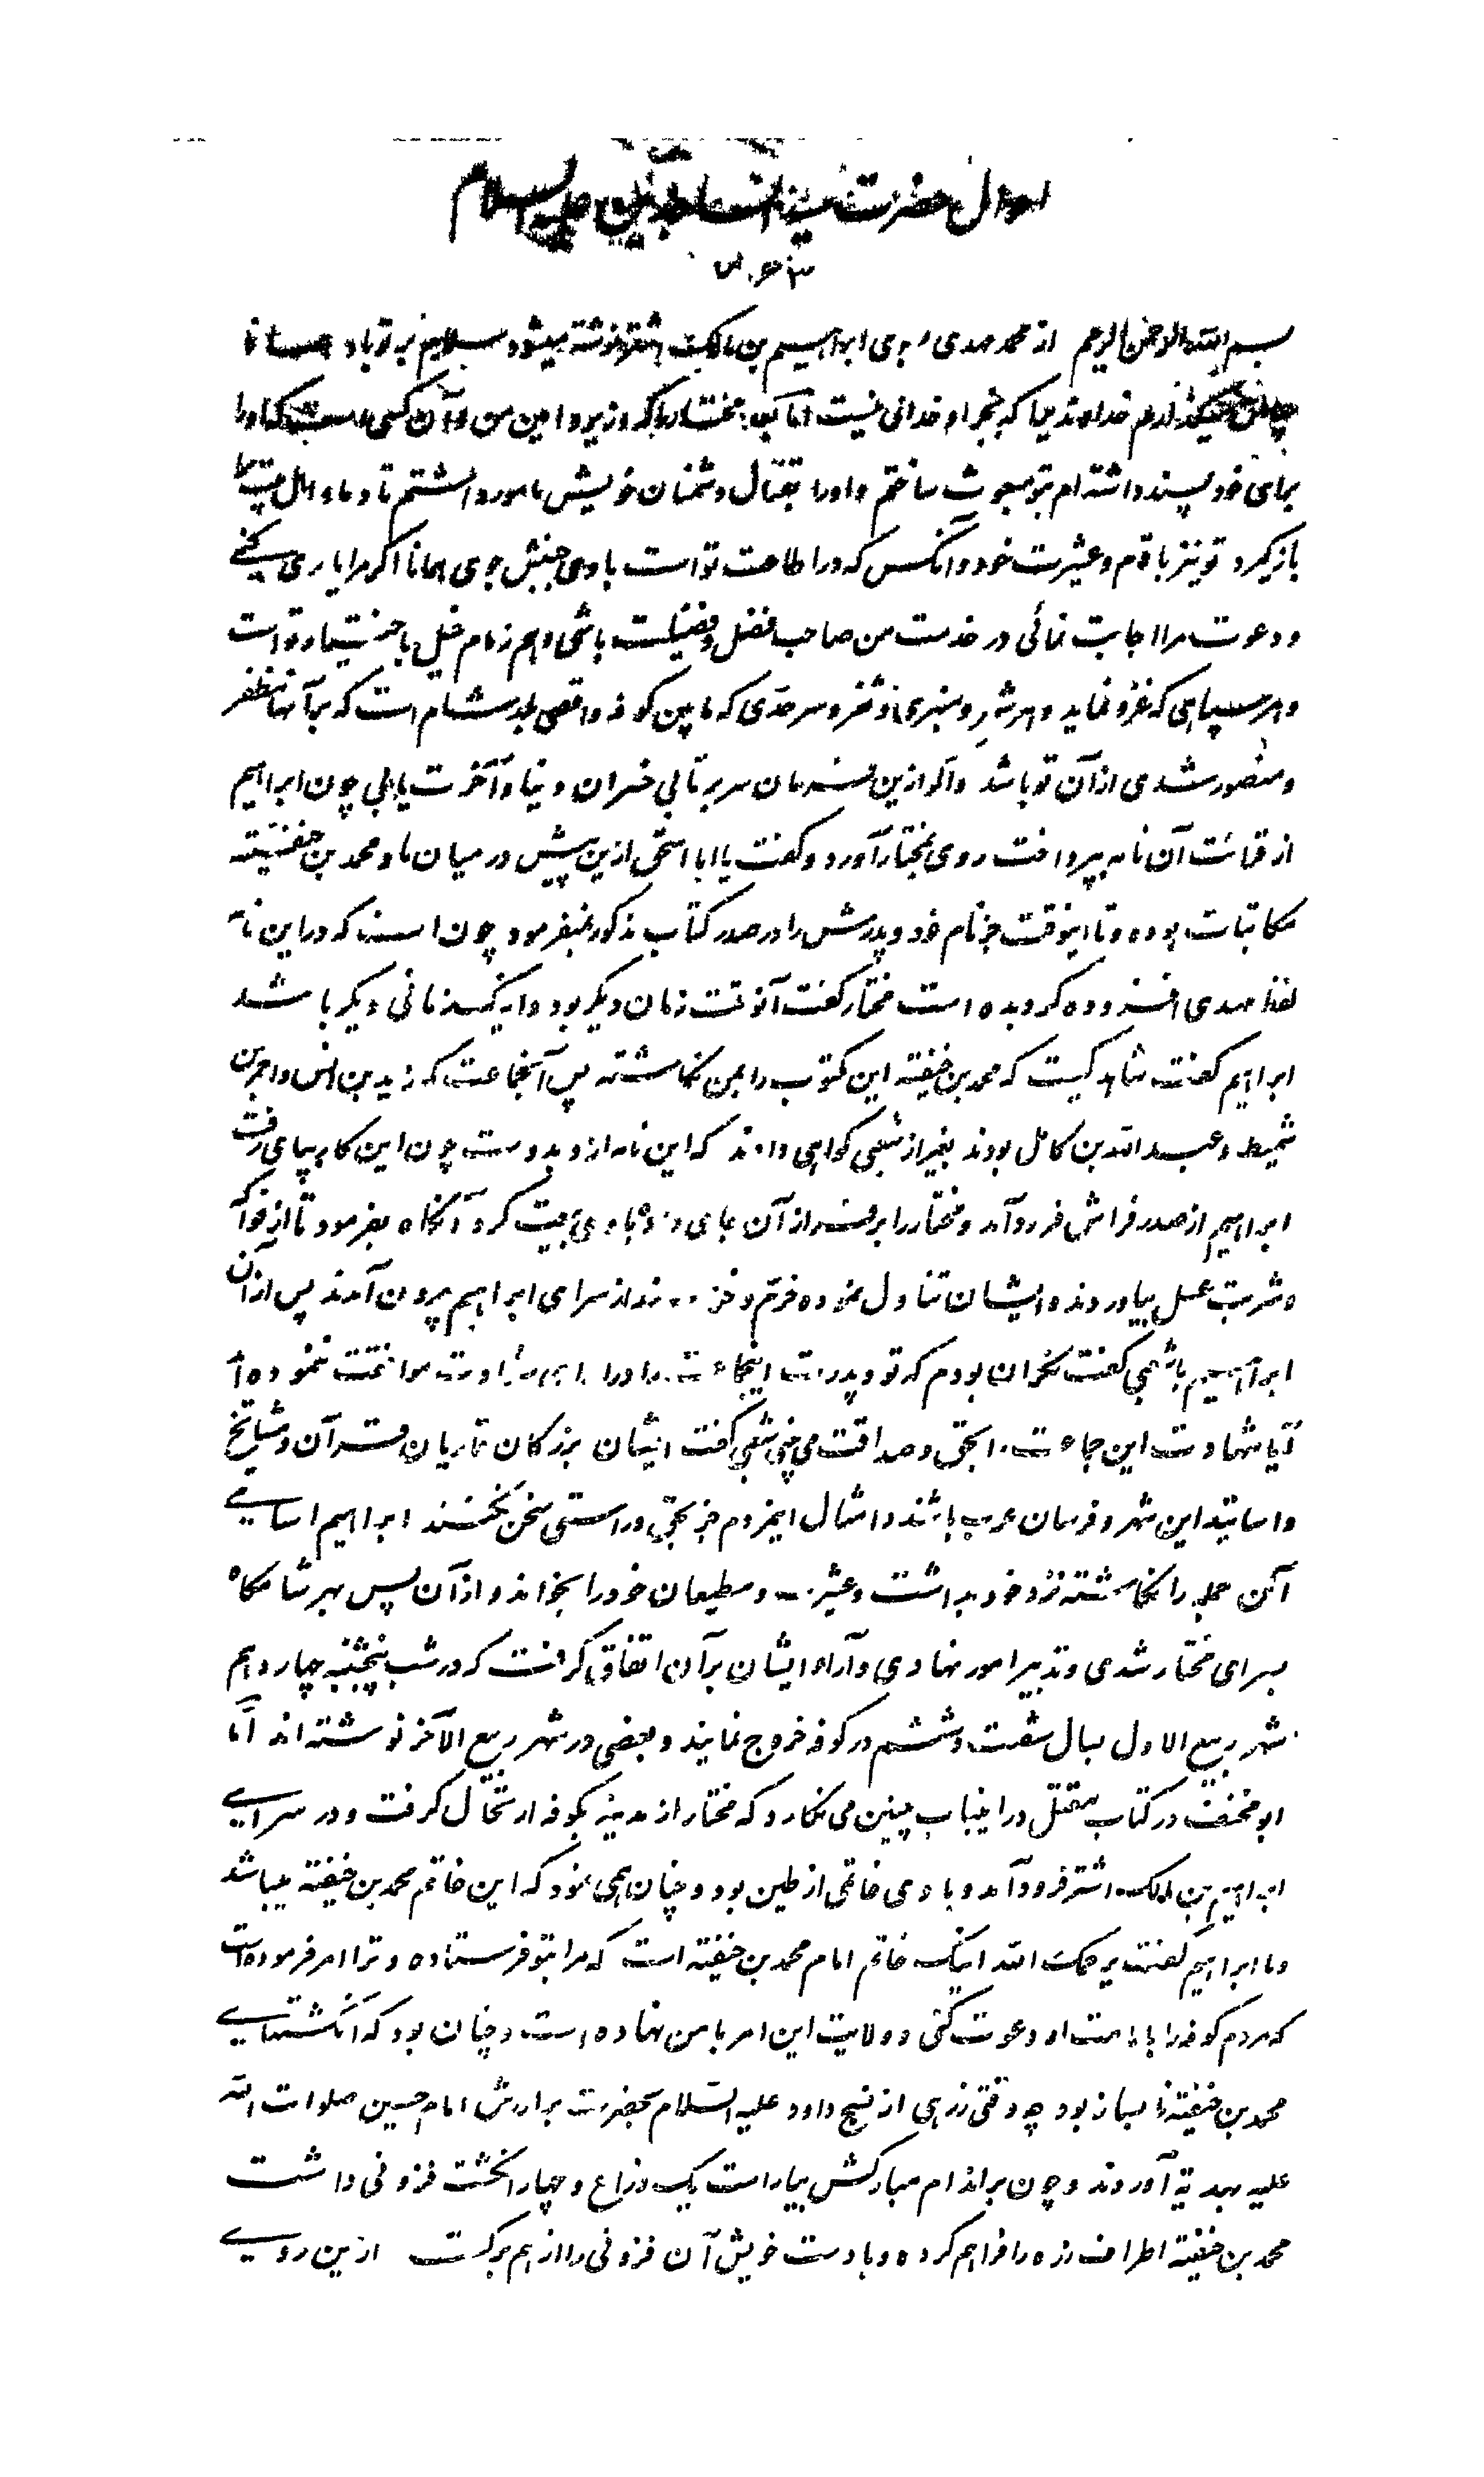 احوال حضرت سید الساجدین علیه السلام
بسم الله الرحمن الرحیم از محمد مهدی بسوی ابراهیم بن مالک اشتر نوشته میشود سلام بر تو باد همانا
سپاس میگذارم خداوندیرا که بجز او خدائی نیست اما بعد مختار را که وزیر و امین من و آن کسی است که او را
برای خود پسند داشته ام بتو مبعوث ساختم و او را بقتال دشمنان خویش مامور داشتم تا دماء اهل بیت
بازگیرد تو نیز با قوم و عشیرت خود و آنکس که در اطاعت تو است با وی جنبش جوی همانا اگر مرا یاری کنی
و دعوت مرا اجابت نمائی در خدمت من صاحب فضل و فضیلت باشی و هم زمام خیل باختیار تو است
و هر سپاهی که غزو نماید و هر شهر و منبری و ثغر و سرحدی که مابین کوفه و اقصی بلد شام است که بر آنها مظفر
و منصور شدی از آن تو باشد و اگر ازین فرمان سر برتابی خسران دنیا و آخرت یابی چون ابراهیم
از قرائت آن نامه بپرداخت روی بمختار آورد و گفت یا ابا اسحق ازین پیش در میان ما و محمد بن حنفیّه
مکاتبات بوده و تا اینوقت جز نام خود و پدرش را در صدر کتاب مذکور نفرمود چون است که در این نامه
لفظ مهدی افزوده گردیده است مختار گفت آنوقت زمان دیگر بود و اینک زمانی دیگر باشد
ابراهیم گفت شاهد کیست که محمد بن حنفیه این مکتوب را بمن نگاشته پس آنجماعت که زید بن انس و احمر بن
شمیط و عبد الله بن کامل بودند بغیر از شعبی گواهی دادند که این نامه از وی بدوست چون این کار بپای رفت
ابراهیم از صدر فراش فرود آمد و مختار را بر فراز آن جای داد و با وی بیعت کرد آنگاه بفرمود تا از فواکه
و شربت عسل بیاوردند و ایشان تناول نموده خرّم و خندان از سرای ابراهیم بیرون آمدند پس از آن
ابراهیم با شعبی گفت نگران بودم که تو و پدرت اینجماعت را در ادای شهادت موافقت ننمودها
آیا شهادت این جماعت را بحق و صداقت می بینی شعبی گفت ایشان بزرگان قاریان قرآن و مشایخ
و اساتید این شهر و فرسان عرب باشند و امثال اینمردم جز بحق و راستی سخن نکنند ابراهیم اسامی
آن جمله را نگاشته نزد خود بداشت و عشیرت و مطیعان خود را بخواند و از آن پس بهر شامگاه
بسرای مختار شدی و تدبیر امور نهادی و آراء ایشان بر آن اتفاق گرفت که در شب پنجشنبه چهاردهم
شهر ربیع الاول بسال شصت و ششم در کوفه خروج نمایند و بعضی در شهر ربیع الآخر نوشته اند امّا
ابو مخنف در کتاب مقتل در اینباب چنین می نگارد که مختار از مدینه بکوفه ارتحال گرفت و در سرای
ابراهیم بن مالک اشتر فرود آمد و با وی خاتمی از طین بود و چنان همی نمود که این خاتم محمد بن حنفیّه میباشد
و با ابراهیم گفت یرحمک الله اینک خاتم امام محمد بن حنفیّه است که مرا بتو فرستاده و ترا امر فرموده است
که مردم کوفه را بامامت او دعوت کنی و ولایت این امر با من نهاده است و چنان بود که انگشتهای
محمد بن حنفیّه نا بساز بود چه وقتی زرهی از نسج داود علیه السّلام بحضرت برادرش امام حسین صلوات الله
علیه بهدیّه آوردند و چون بر اندام مبارکش بیاراست یک ذراع و چهار انگشت فزونی داشت
محمد بن حنفیّه اطراف زره را فراهم کرده و با دست خویش آن فزونی را از هم برگست ازین روی